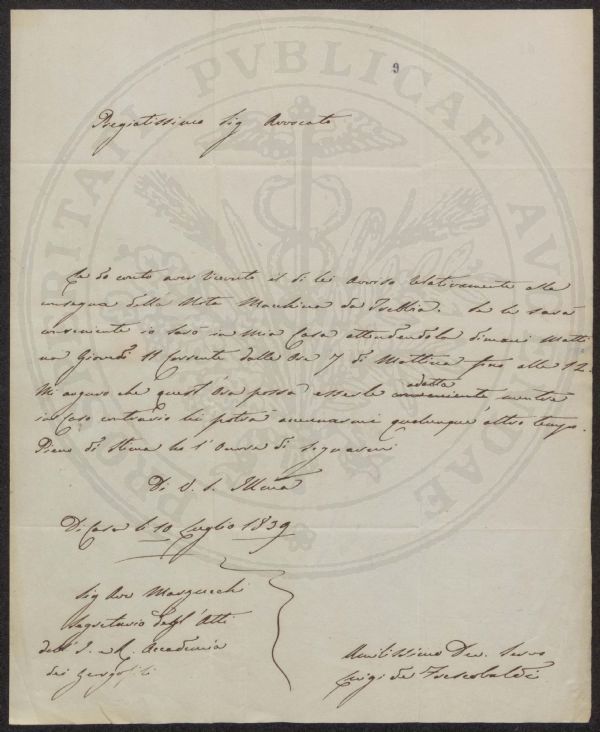 9
Pregiatissimo Sig Avvocato
Le do conto aver ricevuto il di lei Avviso relativamente alla
consegna della Nota Macchina da Trebbia. Se le sarà
conveniente io sarò in Mia Casa attendendola dimani Matti
na Giovedì 11 Corrente dalle Ore 7 di Mattina fino alle 12.
Mi auguro che quest'Ora possa esserle conveniente mentre
adatta
in caso contrario lei potrà accennarmi qualunque altro tempo.
Pieno di Stima ho l'Onore di segnarmi
Di V. S. Illma
Di Casa li 10 Luglio 1839
Sig Avv
Segretario degl'Atti
dell'I. e R. Accademia
dei Georgofili
Umilissimo Dev. Servo
Luigi de Frescobaldi
PROSPERITATI PVBLICAE AVGENDAE